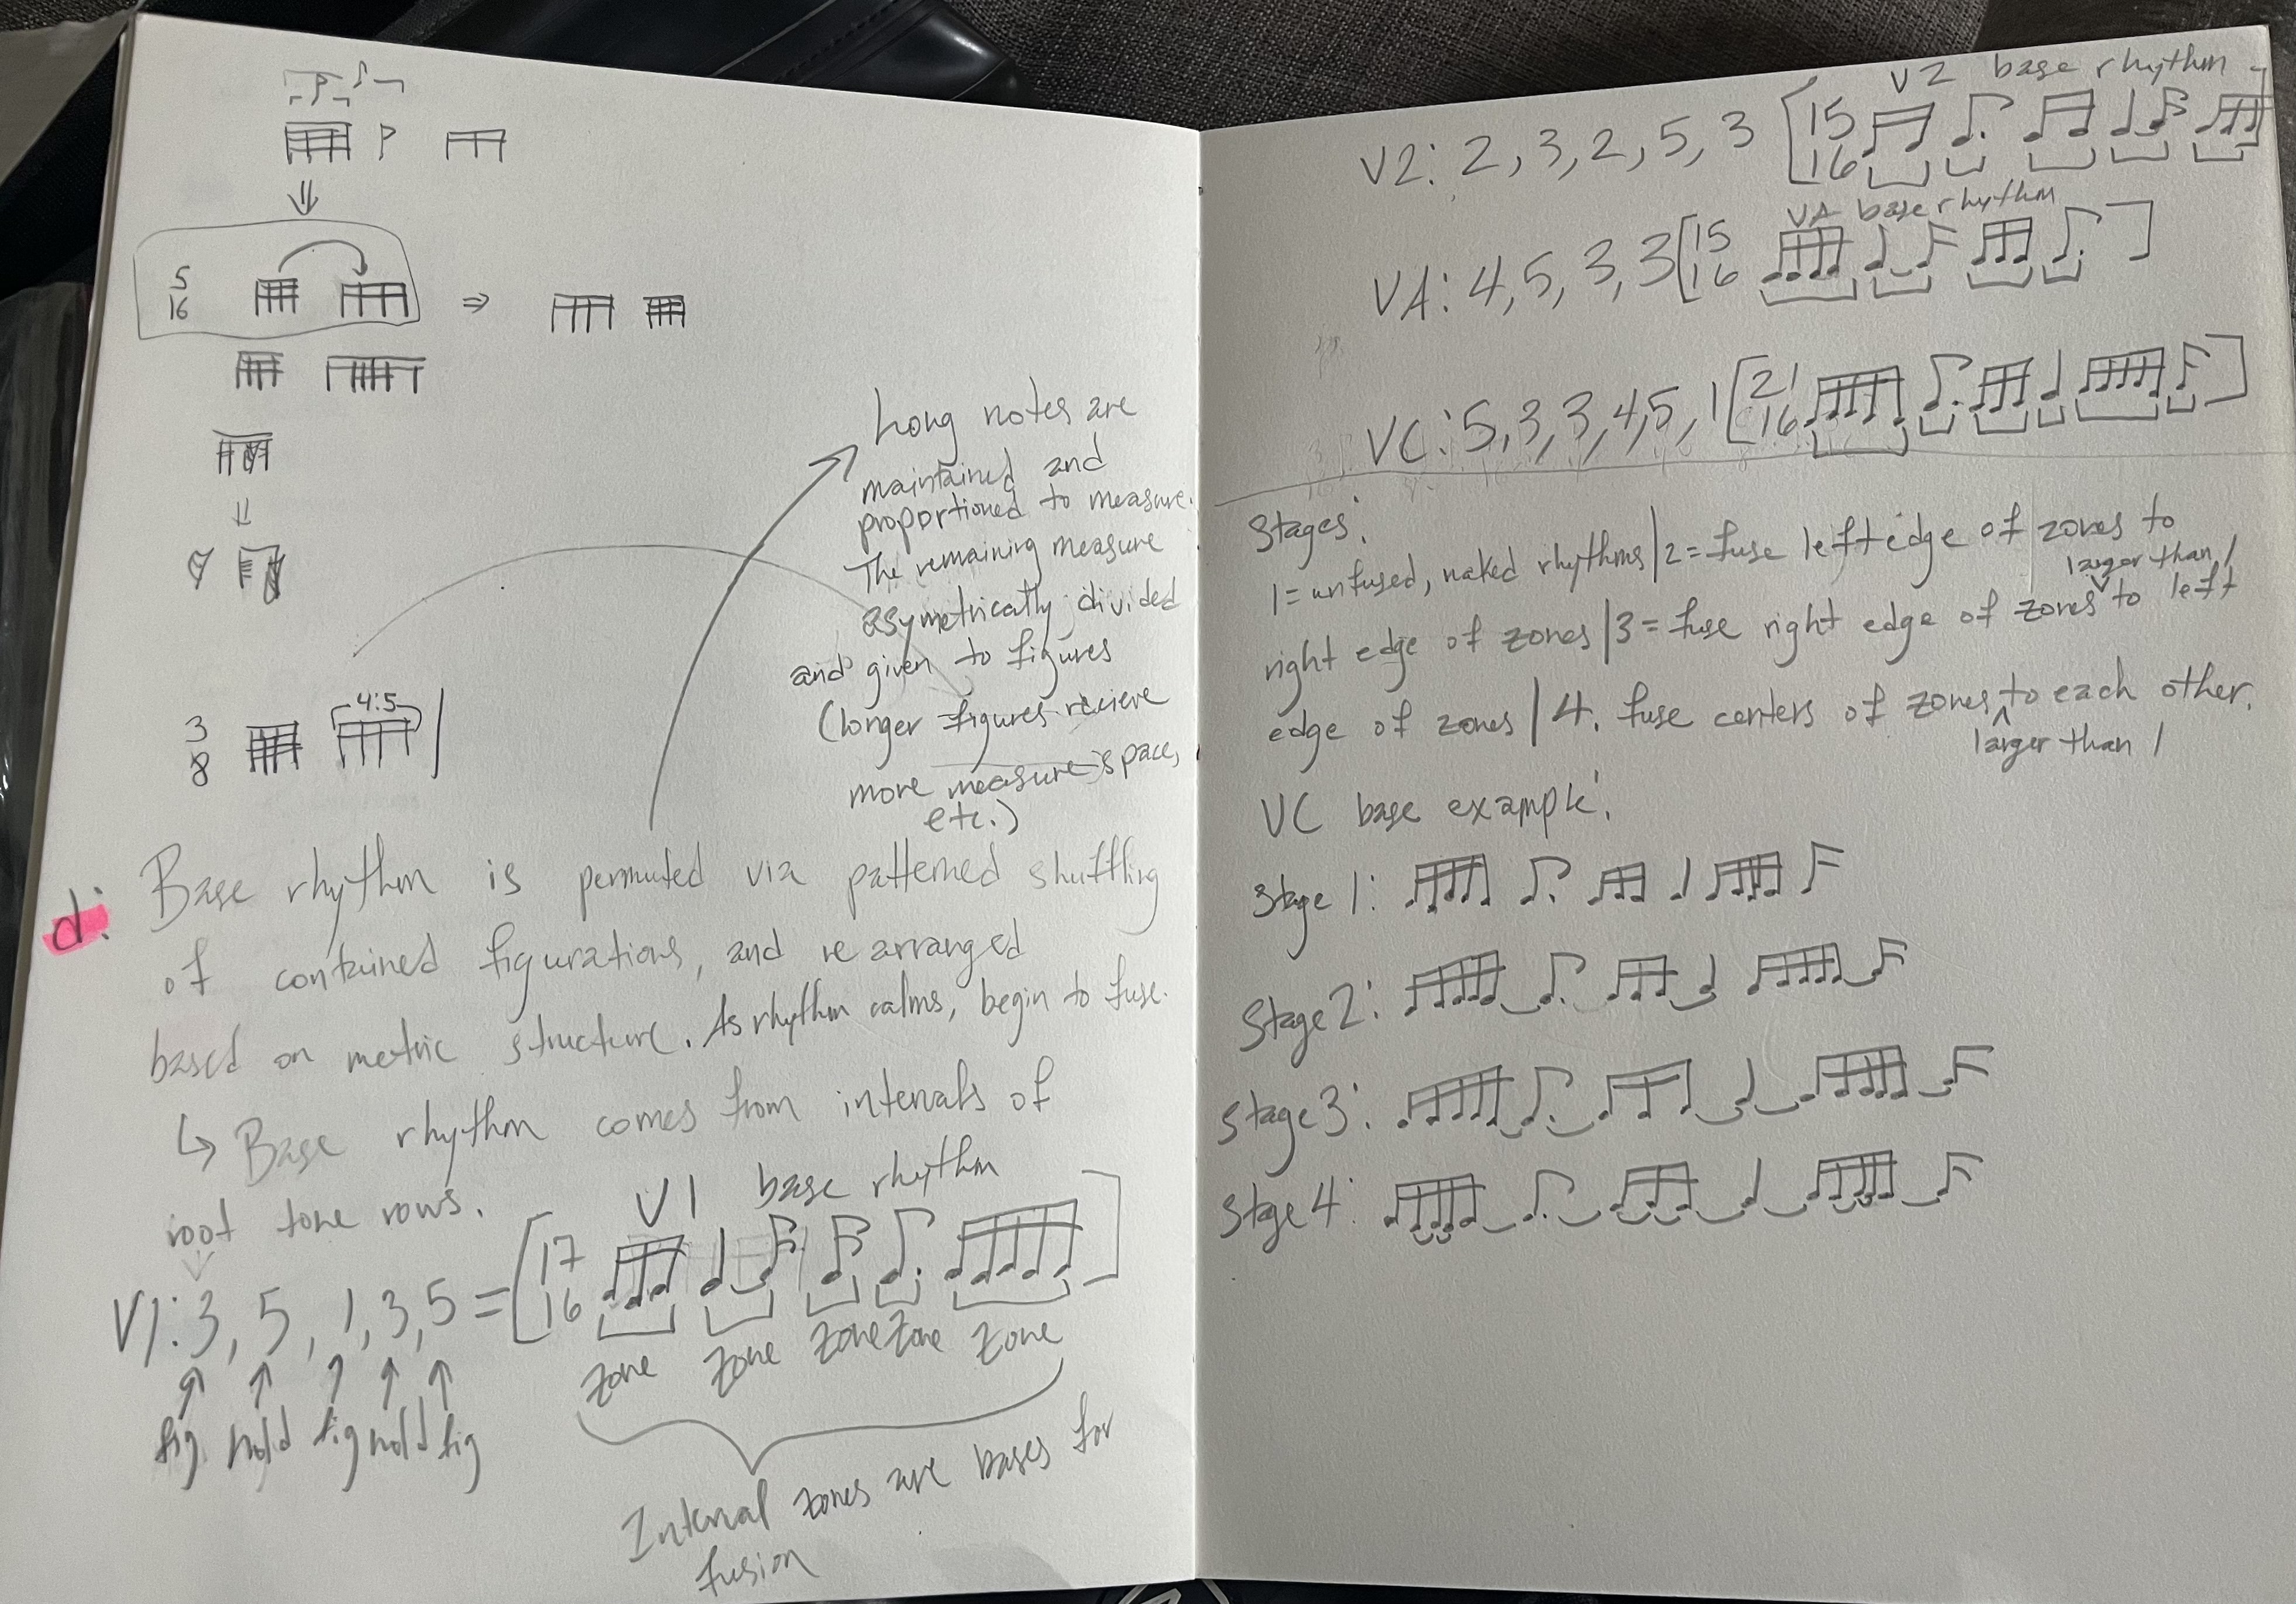 5
16
⇒
Long notes are
maintained and
proportioned to measure.
The remaining measure
asymetrically divided
and given to figures
(longer figures recieve
more measure space,
etc.)
3
8
4:5
d: Base rhythm is permuted via patterned shuffling
of contained figurations, and rearranged
based on metric structure. As rhythm calms, begin to fuse.
↳ Base rhythm comes from intervals of
root tone rows.
V1 base rhythm
V1: 3, 5, 1, 3, 5 = [17
16 ]
fig hold fig hold fig
zone zone zone zone zone
Internal zones are bases for
fusion
V2 base rhythm
V2: 2, 3, 2, 5, 3 [15
16 ]
VA base rhythm
VA: 4, 5, 3, 3 [15
16 ]
VC: 5, 3, 3, 4, 5, 1 [21
16 ]
Stages:
1 = unfused, naked rhythms | 2 = fuse left edge of zones to
right edge of zones | 3 = fuse right edge of zones larger than 1 to left
edge of zones | 4. fuse centers of zones larger than 1 to each other.
VC base example:
Stage 1:
Stage 2:
Stage 3:
Stage 4: